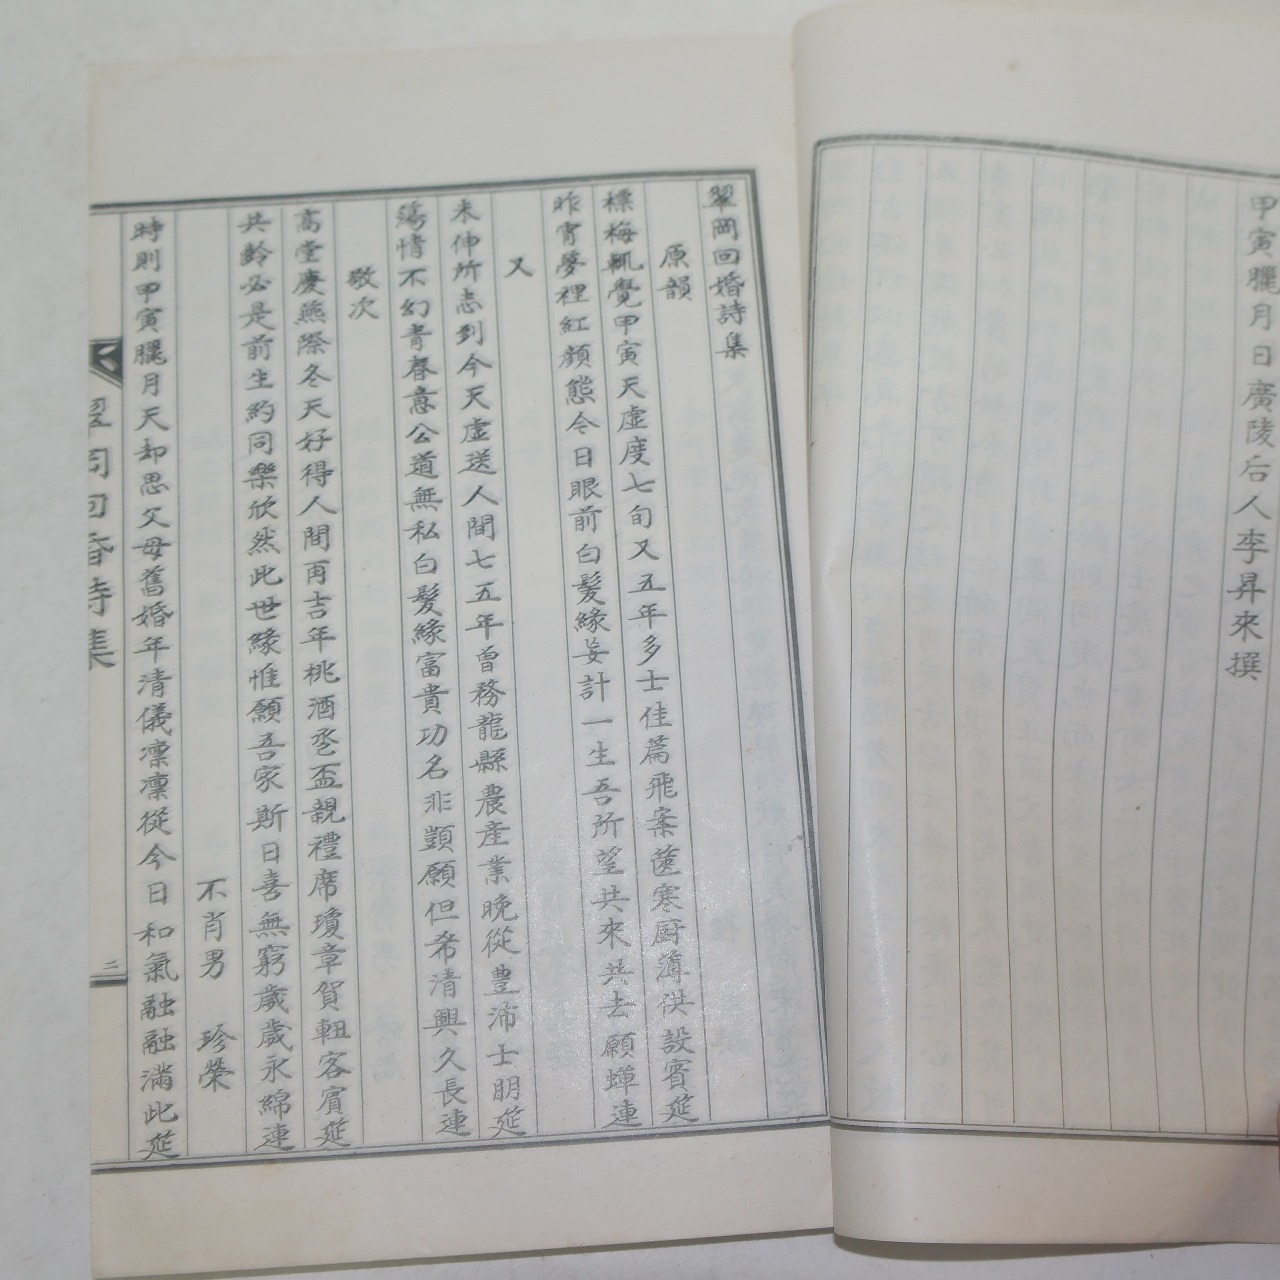 甲寅臘月日廣陵后人李昇來撰
翠岡回婚詩集
原韻
標梅輒覺甲寅天虛度七旬又五年多士佳篇飛案篋寒厨薄供設賓筵
昨宵夢裡紅顔態今日眼前白髮緣妄計一生吾所望共來共去願蟬連
又
未伸所志到今天虛送人間七五年曾務龍縣農産業晚從豊沛士朋筵
蕩情不幻靑春意公道無私白髮緣富貴功名非顗願但希清興久長連
敬次
高堂慶燕際冬天好得人間再吉年桃酒丞盃親禮席瓊章賀軸客賓筵
共齡必是前生約同樂欣然此世緣惟願吾家斯日喜無窮歲歲永綿連
不肖男 珍榮
時則甲寅臘月天却思父母舊婚年清儀凛凛從今日和氣融融滿此筵
翠岡回婚詩集
二